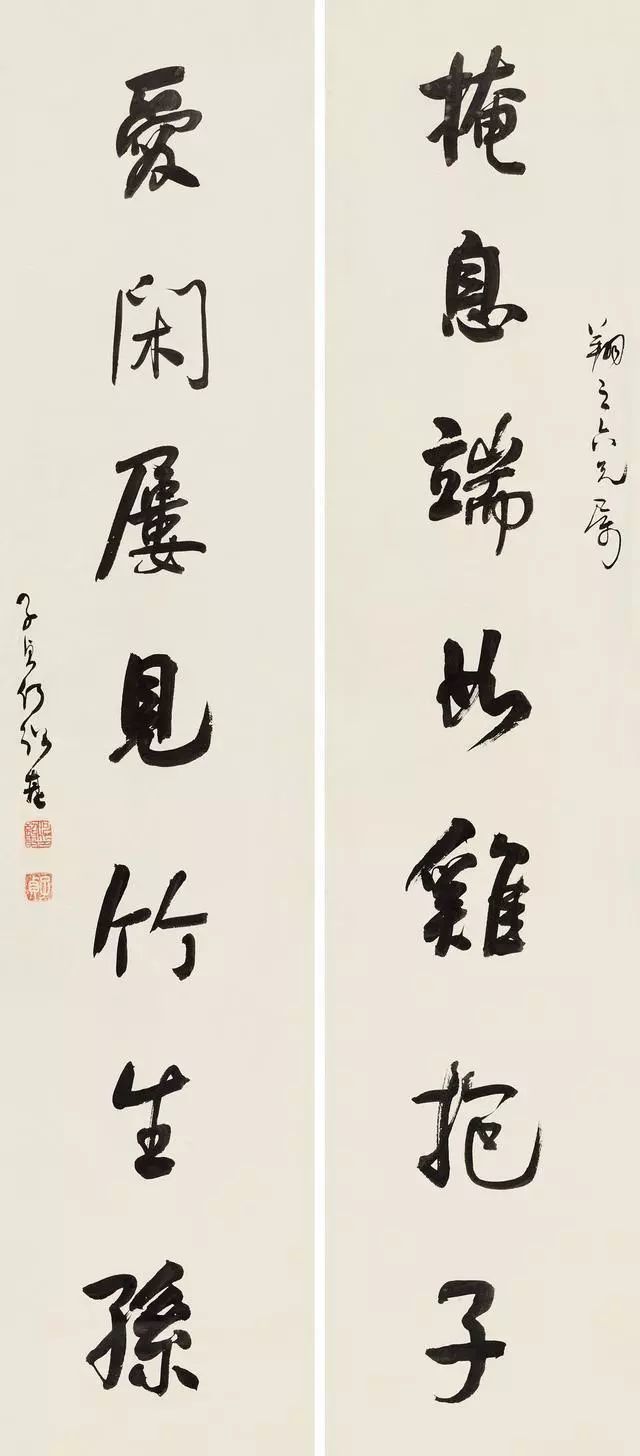 掩息端如雞抱子
翔之六兄屬
愛閑屢見竹生孫
子貞何紹基
子貞